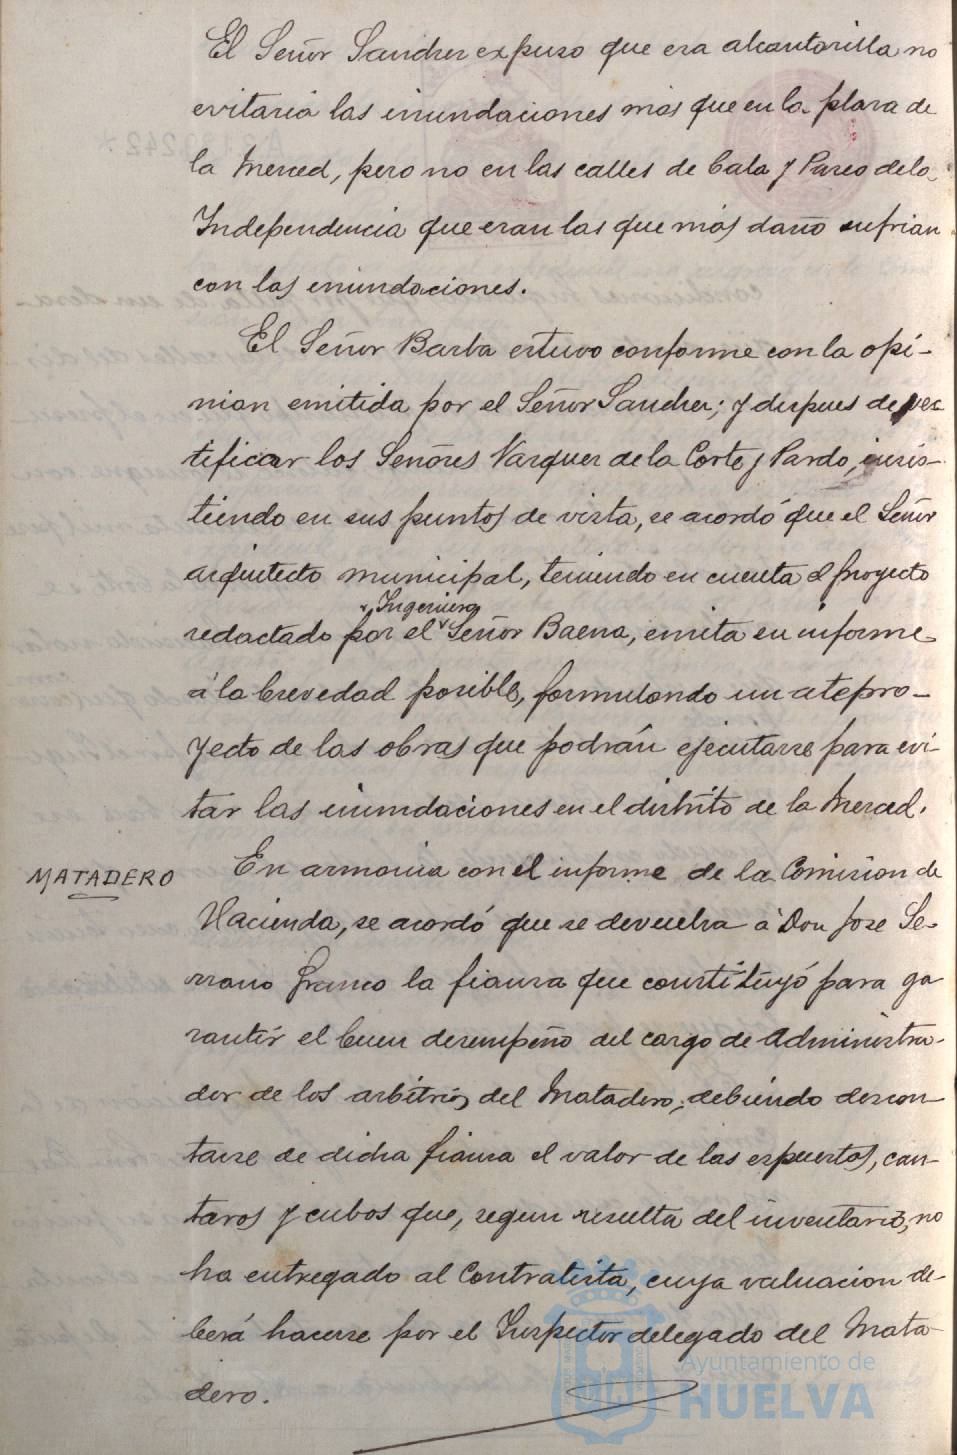 El Señor Sanchez expuso que esa alcantarilla no
evitaria las inundaciones más que en la plaza de
la Merced, pero no en las calles de Cala y Paseo de la
Independencia que eran las que más daño sufrian
con las inundaciones.
El Señor Barba estuvo conforme con la opi-
nion emitida por el Señor Sanchez; y despues de rec
tificar los Señores Vazquez de la Corte y Pardo, insis-
tiendo en sus puntos de vista, se acordó que el Señor
arquitecto municipal, teniendo en cuenta el proyecto
Ingeniero
redactado por el Señor Baena, emita su informe
á la brevedad posible, formulando un atepro-
yecto de las obras que podrán ejecutarse para evi-
tar las inundaciones en el distrito de la Merced.
MATADERO
En armonia con el informe de la Comision de
Hacienda, se acordó que se devuelva á Don Jose Se-
rrano Franco la fianza que constituyó para ga
rantir el buen desempeño del cargo de Administra-
dor de los arbitrios del Matadero, debiendo descon-
tarse de dicha fianza el valor de las espuertas, can-
taros y cubos que, segun resulta del inventario, no
ha entregado al Contratista, cuya valuacion de-
berá hacerse por el Inspector delegado del Mata-
dero.
Ayuntamiento de
HUELVA